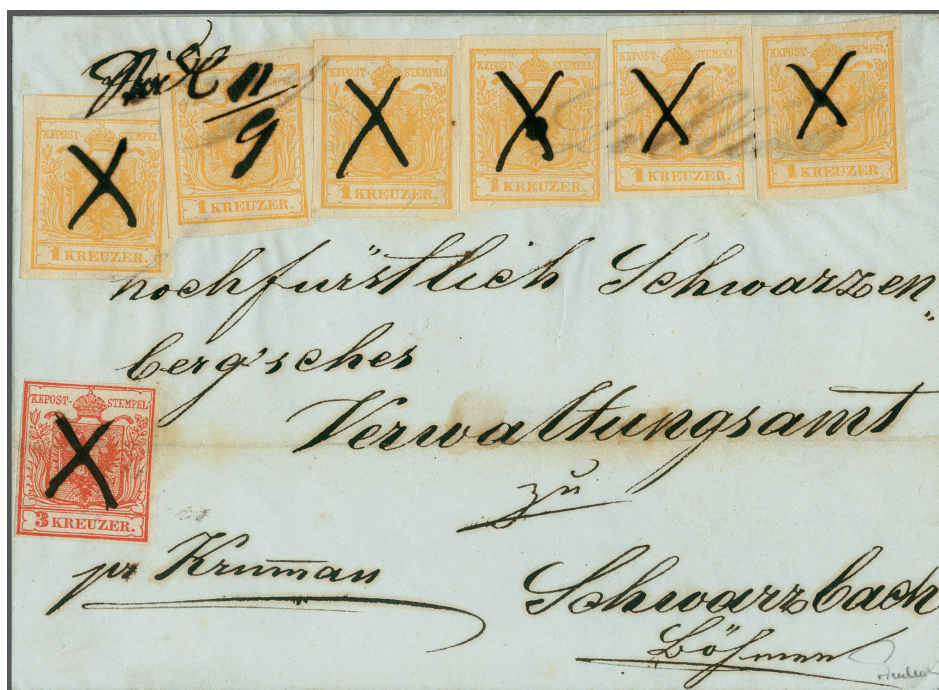 KKPOST-STEMPEL 1 KREUZER.
KKPOST-STEMPEL 11/9 1 KREUZER.
KKPOST-STEMPEL X 1 KREUZER.
KKPOST-STEMPEL X 1 KREUZER.
KKPOST-STEMPEL X 1 KREUZER.
KKPOST-STEMPEL X 1 KREUZER.
hochfürstlich Schwarzen"
berg'sches
Verwaltungsamt
zu
KKPOST-STEMPEL X 3 KREUZER.
pr Krumau
Schwarzbach
Böhmen